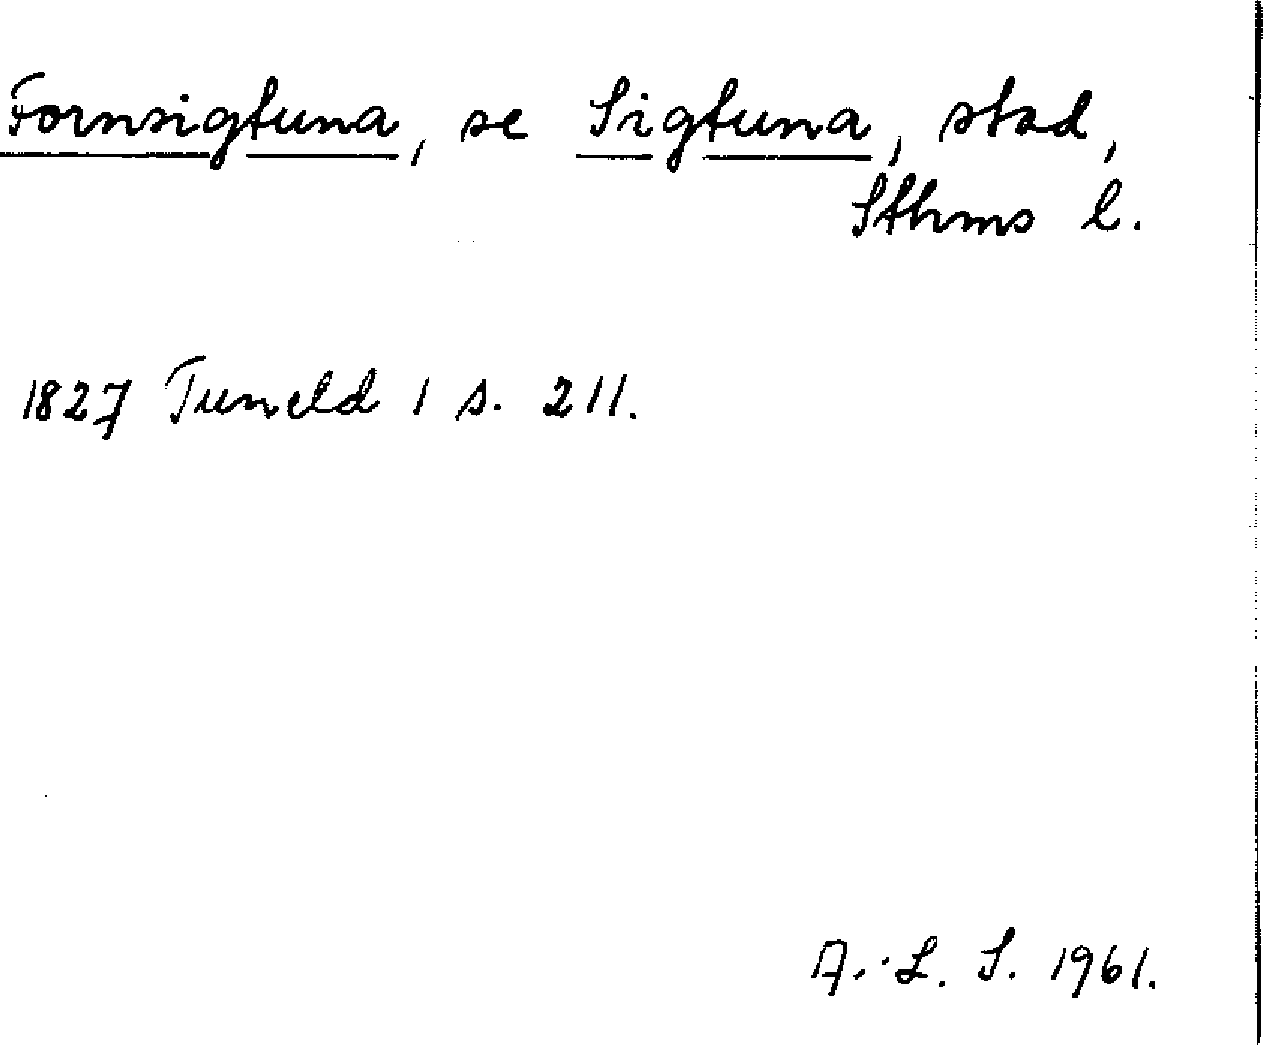 Fornsigtuna, se Sigtuna, stad,
Sthms l.
1827 Tuneld 1 s. 211.
A.-L. S. 1961.